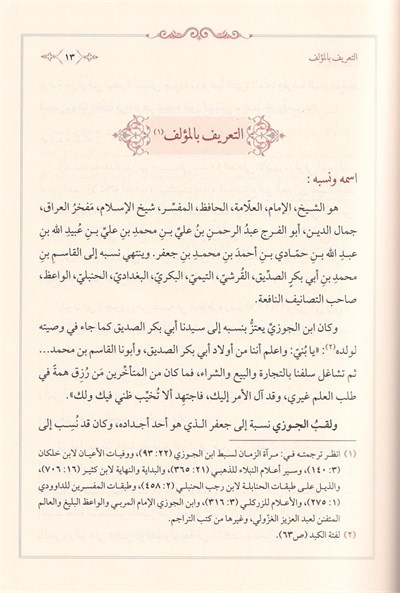 التعريف بالمؤلف
١٣
التعريف بالمؤلف (١)
اسمه ونسبه :
هو الشيخ، الإمام، العلّامة، الحافظ، المفسّر، شيخ الإسلام، مَفخرُ العراق،
جمال الدين، أبو الفرج عبدُ الرحمنِ بنُ عليِّ بنِ محمدِ بنِ عليِّ بنِ عُبيدِ الله بنِ
عبدِ الله بنِ حمّادي بنِ أحمدَ بنِ محمدِ بنِ جعفر. وينتهي نسبه إلى القاسم بنِ
محمدِ بنِ أبي بكرٍ الصدِّيق، القُرشيّ، التيميّ، البكريّ، البغداديّ، الحنبليّ، الواعظ،
صاحب التصانيف النافعة.
وكان ابن الجوزيّ يعتزُّ بنسبه إلى سيدنا أبي بكر الصديق كما جاء في وصيته
لولده(٢): «يا بُنيّ: واعلم أننا من أولاد أبي بكر الصديق، وأبونا القاسم بن محمد...
ثم تشاغل سلفنا بالتجارة والبيع والشراء، فما كان من المتأخّرين مَن رُزِق همةً في
طلب العلم غيري، وقد آل الأمر إليك، فاجتهد ألا تُخيّب ظني فيك ولك».
ولقبُ الجوزي نسبة إلى جعفر الذي هو أحد أجداده، وكان قد نُسِب إلى
(١) انظر ترجمته في: مرآة الزمان لسبط ابن الجوزي (٢٢: ٩٣)، ووفيات الأعيان لابن خلكان
(٣: ١٤٠)، وسير أعلام النبلاء للذهبي (٢١: ٣٦٥)، والبداية والنهاية لابن كثير (١٦: ٧٠٦)،
والذيل على طبقات الحنابلة لابن رجب الحنبلي (٢: ٤٥٨)، وطبقات المفسرين للداوودي
(١: ٢٧٥)، والأعلام للزركلي (٣: ٣١٦)، وابن الجوزي الإمام المربي والواعظ البليغ والعالم
المتفنن لعبد العزيز الغزولي، وغيرها من كتب التراجم.
(٢) لفتة الكبد (ص٦٣).